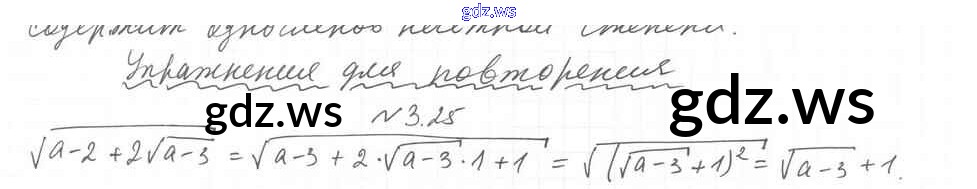 gdz.ws
содержит одночленов нечетной степени.
Упражнения для повторения
gdz.ws
gdz.ws
№3.25
√(a-2+2√(a-3)) = √(a-3+2·√(a-3)·1+1) = √((√(a-3)+1)²) = √(a-3)+1.